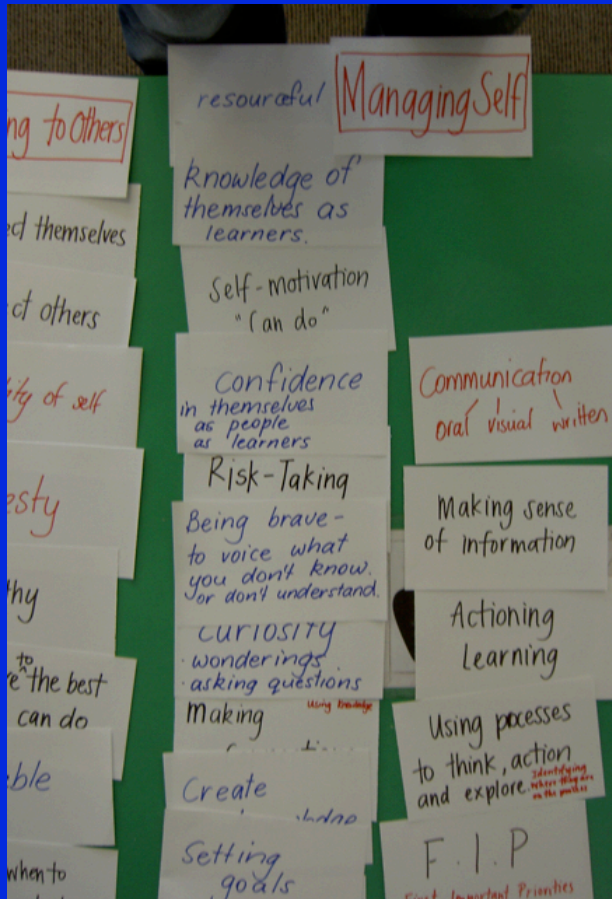 ng to Others
ed themselves
ct others
ity of self
esty
hy
to
e the best
can do
ble
when to
resourceful
Managing Self
knowledge of
themselves as
learners.
Self-motivation
"Can do"
Confidence
in themselves
as people
as learners
Risk-Taking
Being brave-
to voice what
you don't know.
or don't understand.
curiosity
· wonderings
· asking questions
Making
using knowledge
Create
Setting
goals
Communication
oral visual written
Making sense
of information
Actioning
Learning
Using processes
to think, action
and explore.
Identifying
where they are
on the process
F.I.P
First Important Priorities